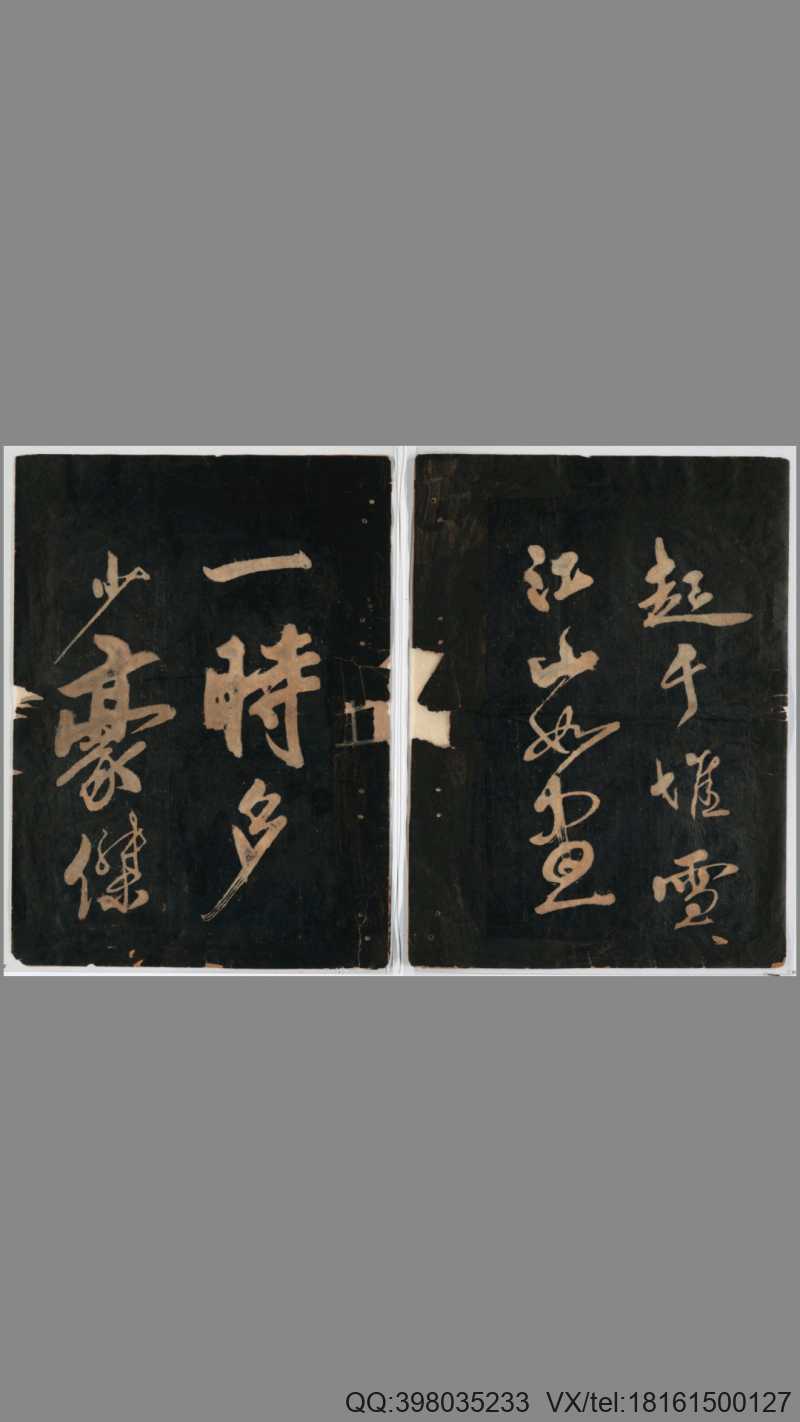 起千堆雪
江山如画
一時多
少豪傑
QQ:398035233 VX/tel:18161500127